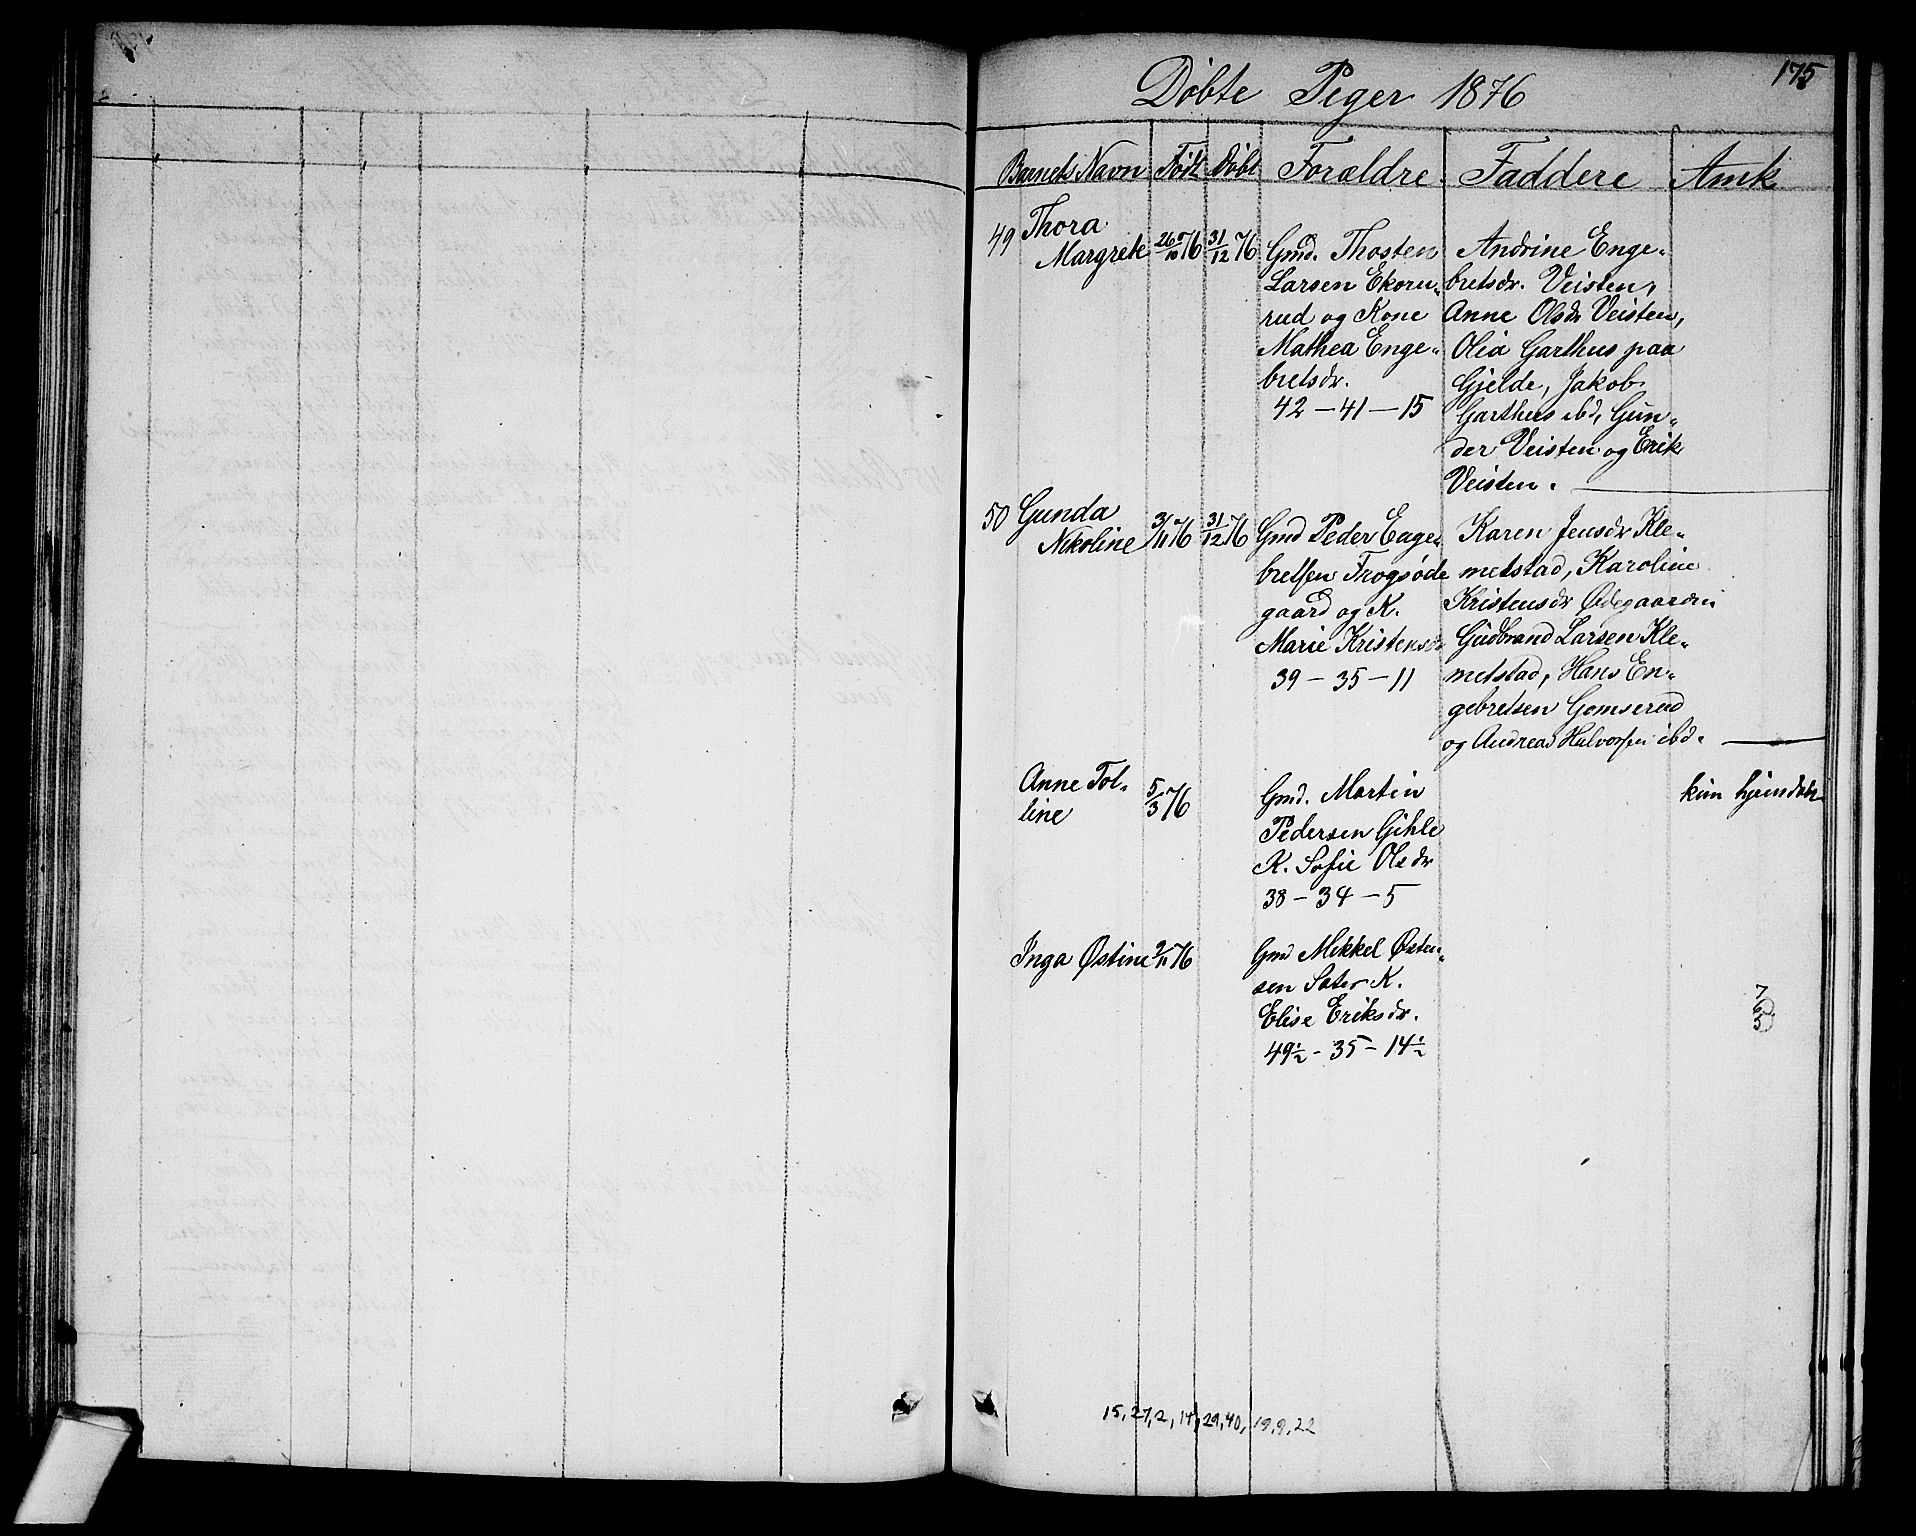 175
Döbte Piger 1876
Barnets Navn Født Döbt Forældre Faddere Anmk.
49 Thora
Margrete 26/10 76 31/12 76
Gmd. Thosten
Larsen Ekoru-
rud og Kone
Mathea Enge-
bretsdr.
42 — 41 — 15
Andrine Enge-
bretsdr. Veisten,
Anne Olsdr Veisten,
Olia Garthus paa
Gjelde, Jakob
Garthus ibd, Gun-
der Veisten og Erik
Veisten.
50 Gunda
Nikoline 3/11 76 31/12 76
Gmd Peder Enge-
bretsen Frogsøde
gaard og K.
Marie Kristensdr
39 — 35 — 11
Karen Jensdr Kle-
metstad, Karoline
Kristensdr Ødegaarden
Gudbrand Larsen Kle-
metstad, Hans En-
gebretsen Gomserud
og Andreas Halvorsen ibd.
Anne Tol-
line 5/3 76
Gmd. Martin
Pedersen Gihle
K. Sofie Olsdr
38 — 34 — 5
kun hjemdøbt
Inga Østine 2/11 76
Gmd Mikkel Østen-
sen Sater K.
Elise Eriksdr.
49½ - 35 - 14½
7
6
5
15, 27, 2, 14, 29, 40, 19, 9, 22